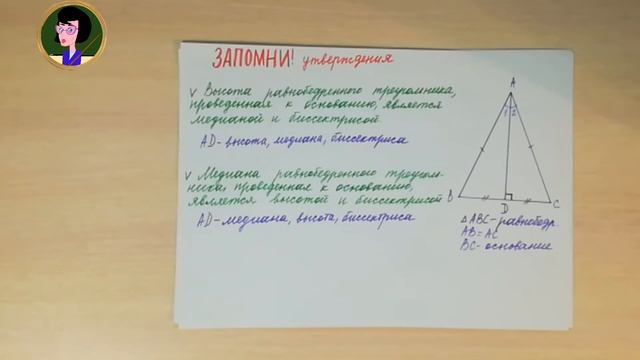 ЗАПОМНИ! утверждения
√ Высота равнобедренного треугольника,
проведенная к основанию, является
медианой и биссектрисой.
AD - высота, медиана, биссектриса
√ Медиана равнобедренного треуголь-
ника, проведенная к основанию,
является высотой и биссектрисой
AD - медиана, высота, биссектриса
A
1 2
B
D
C
△ABC - равнобедр.
AB = AC
BC - основание